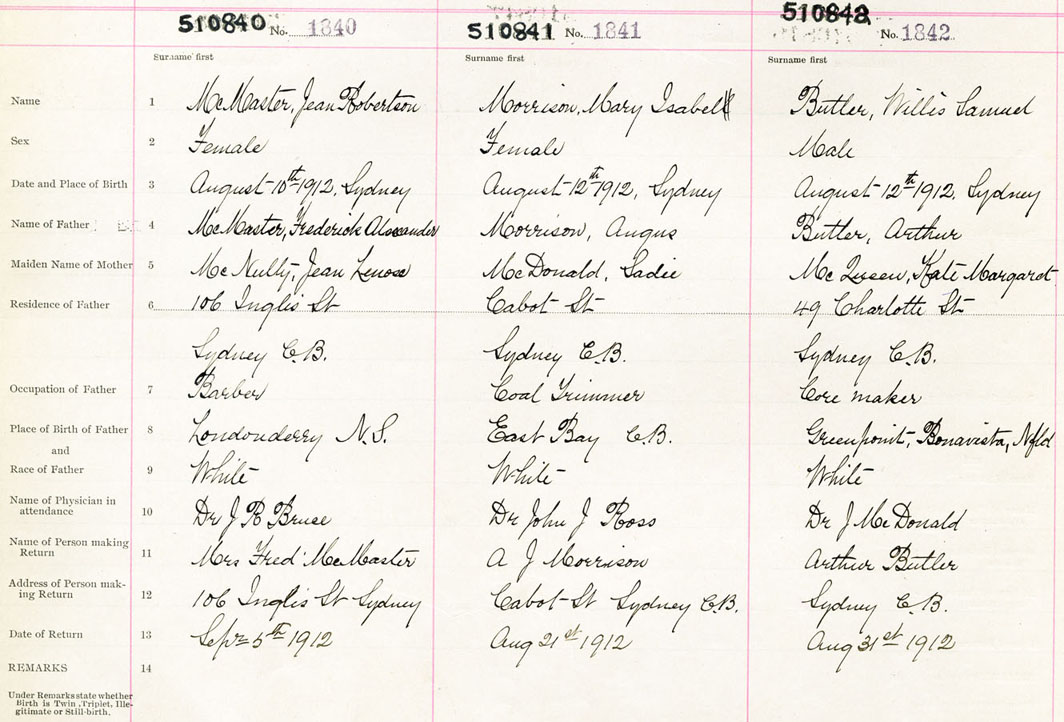 510840 No. 1840 510841 No. 1841 510842 No. 1842
Surname first Surname first Surname first
Name 1 McMaster, Jean Robertson Morrison, Mary Isabell Butler, Willis Samuel
Sex 2 Female Female Male
Date and Place of Birth 3 August 10th 1912, Sydney August 12th 1912, Sydney August 12th 1912, Sydney
Name of Father 4 McMaster, Frederick Alexander Morrison, Angus Butler, Arthur
Maiden Name of Mother 5 McNully, Jean Lenose McDonald, Sadie McQueen, Kate Margaret
Residence of Father 6 106 Inglis St Cabot St 49 Charlotte St
Sydney C.B. Sydney C.B. Sydney C.B.
Occupation of Father 7 Barber Coal Trimmer Core maker
Place of Birth of Father 8 Londonderry N.S. East Bay C.B. Greenpoint, Bonavista, Nfld
and
Race of Father 9 White White White
Name of Physician in
attendance 10 Dr J R Bruce Dr John J Ross Dr J McDonald
Name of Person making
Return 11 Mrs Fred McMaster A J Morrison Arthur Butler
Address of Person mak-
ing Return 12 106 Inglis St Sydney Cabot St Sydney C.B. Sydney C.B.
Date of Return 13 Sepr 5th 1912 Aug 21st 1912 Aug 31st 1912
REMARKS 14
Under Remarks state whether
Birth is Twin, Triplet, Ille-
gitimate or Still-birth.